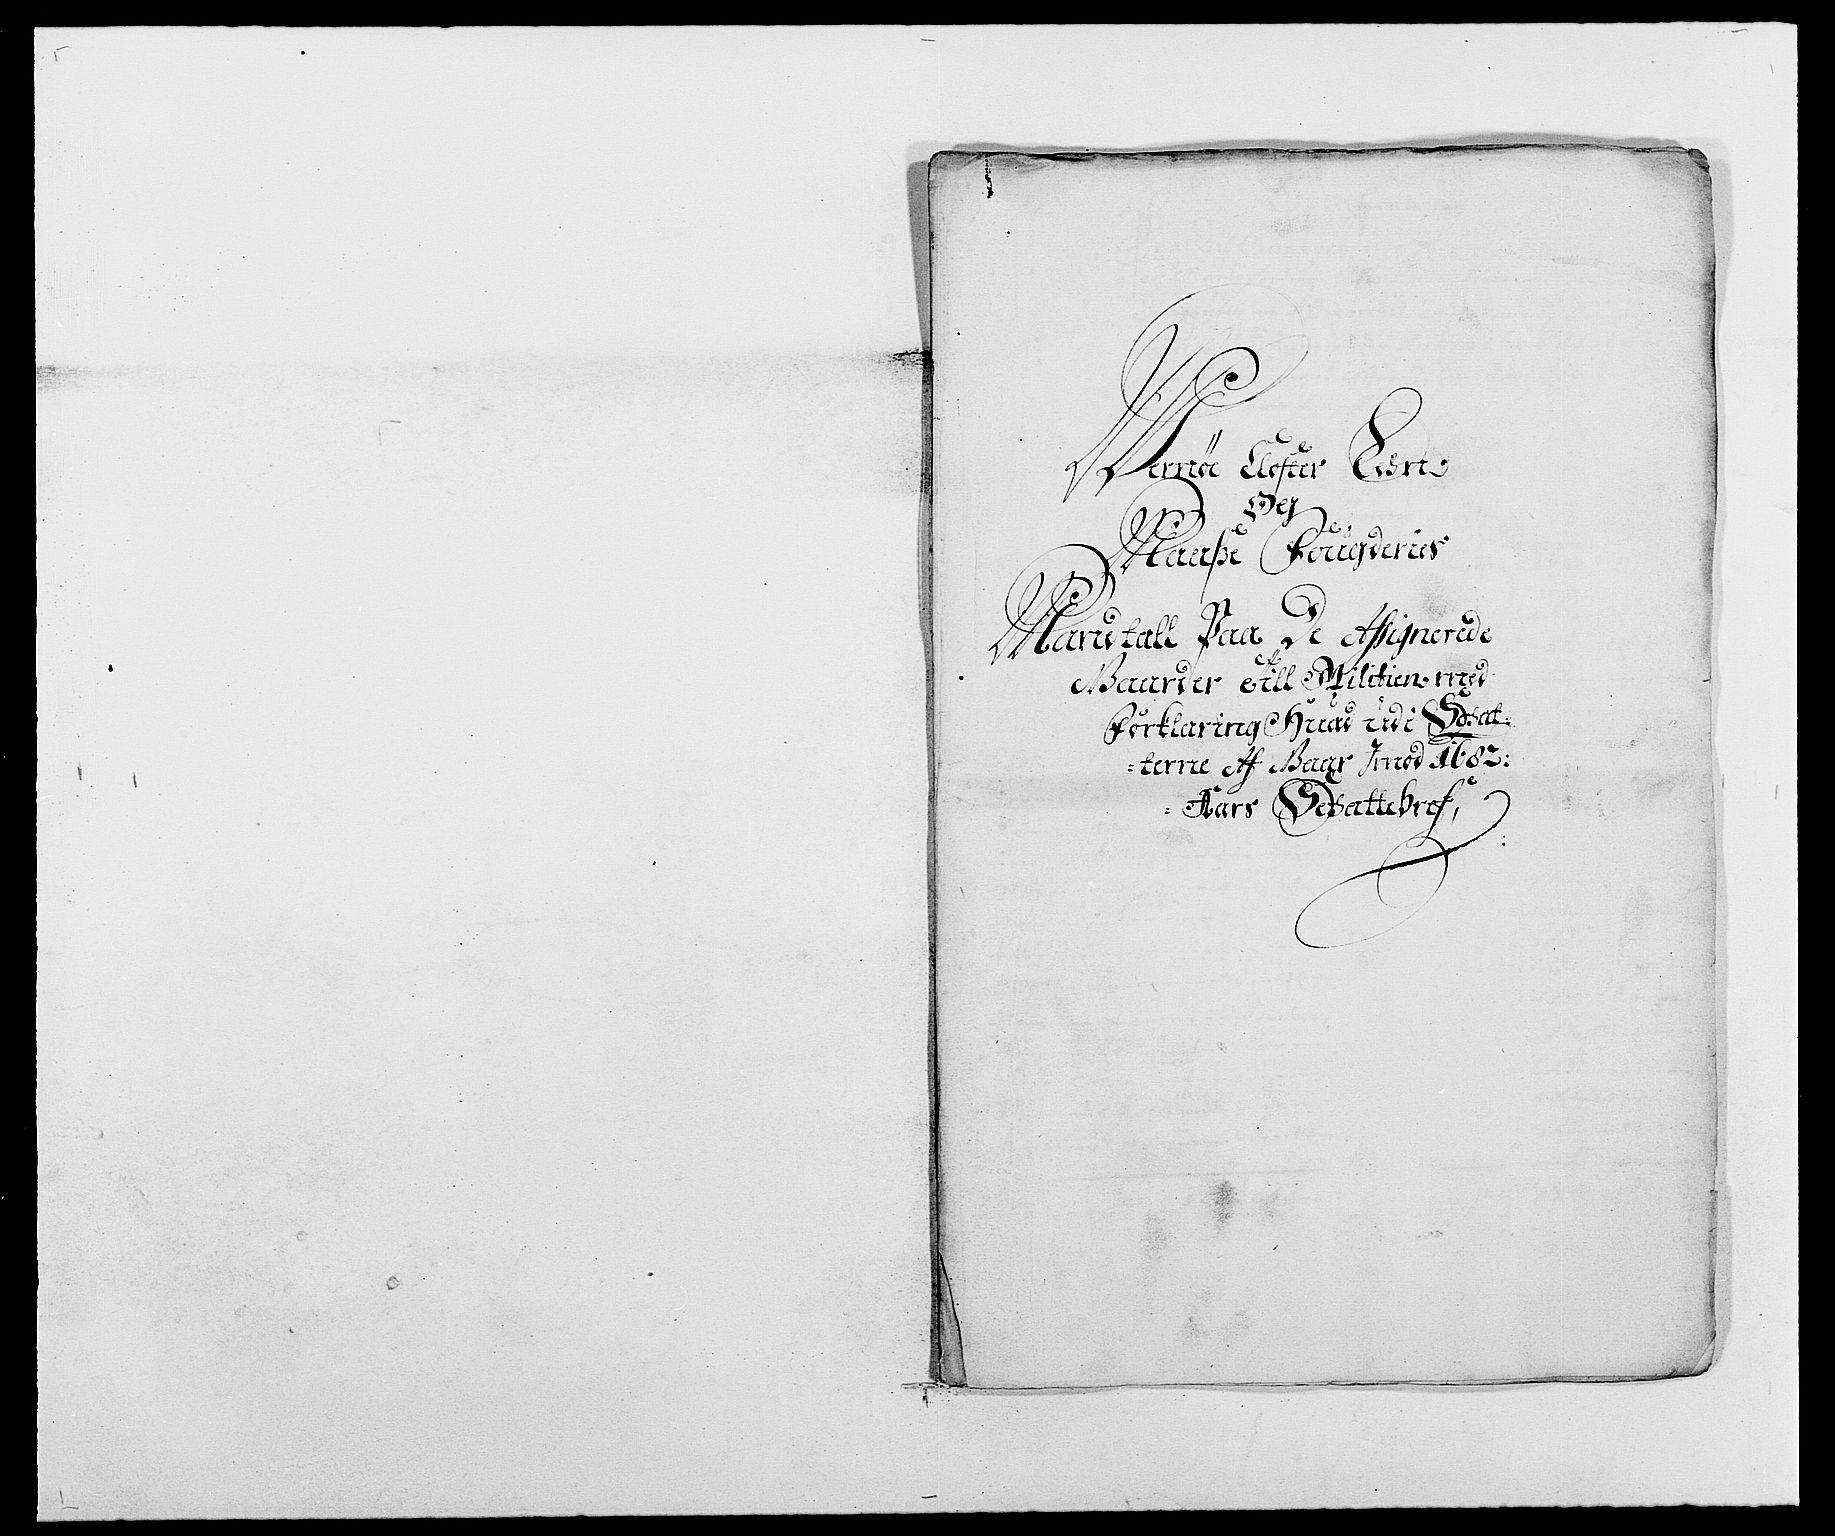 Wernøe Closter Lehn
Og
Maaße Fougderies
Mandtall Paa De Assignerede
Gaarder Till Militien med
Forklaring Huad udi Schat-
-terne Af Gaar Imod 1682:
-Aars Schattebref,